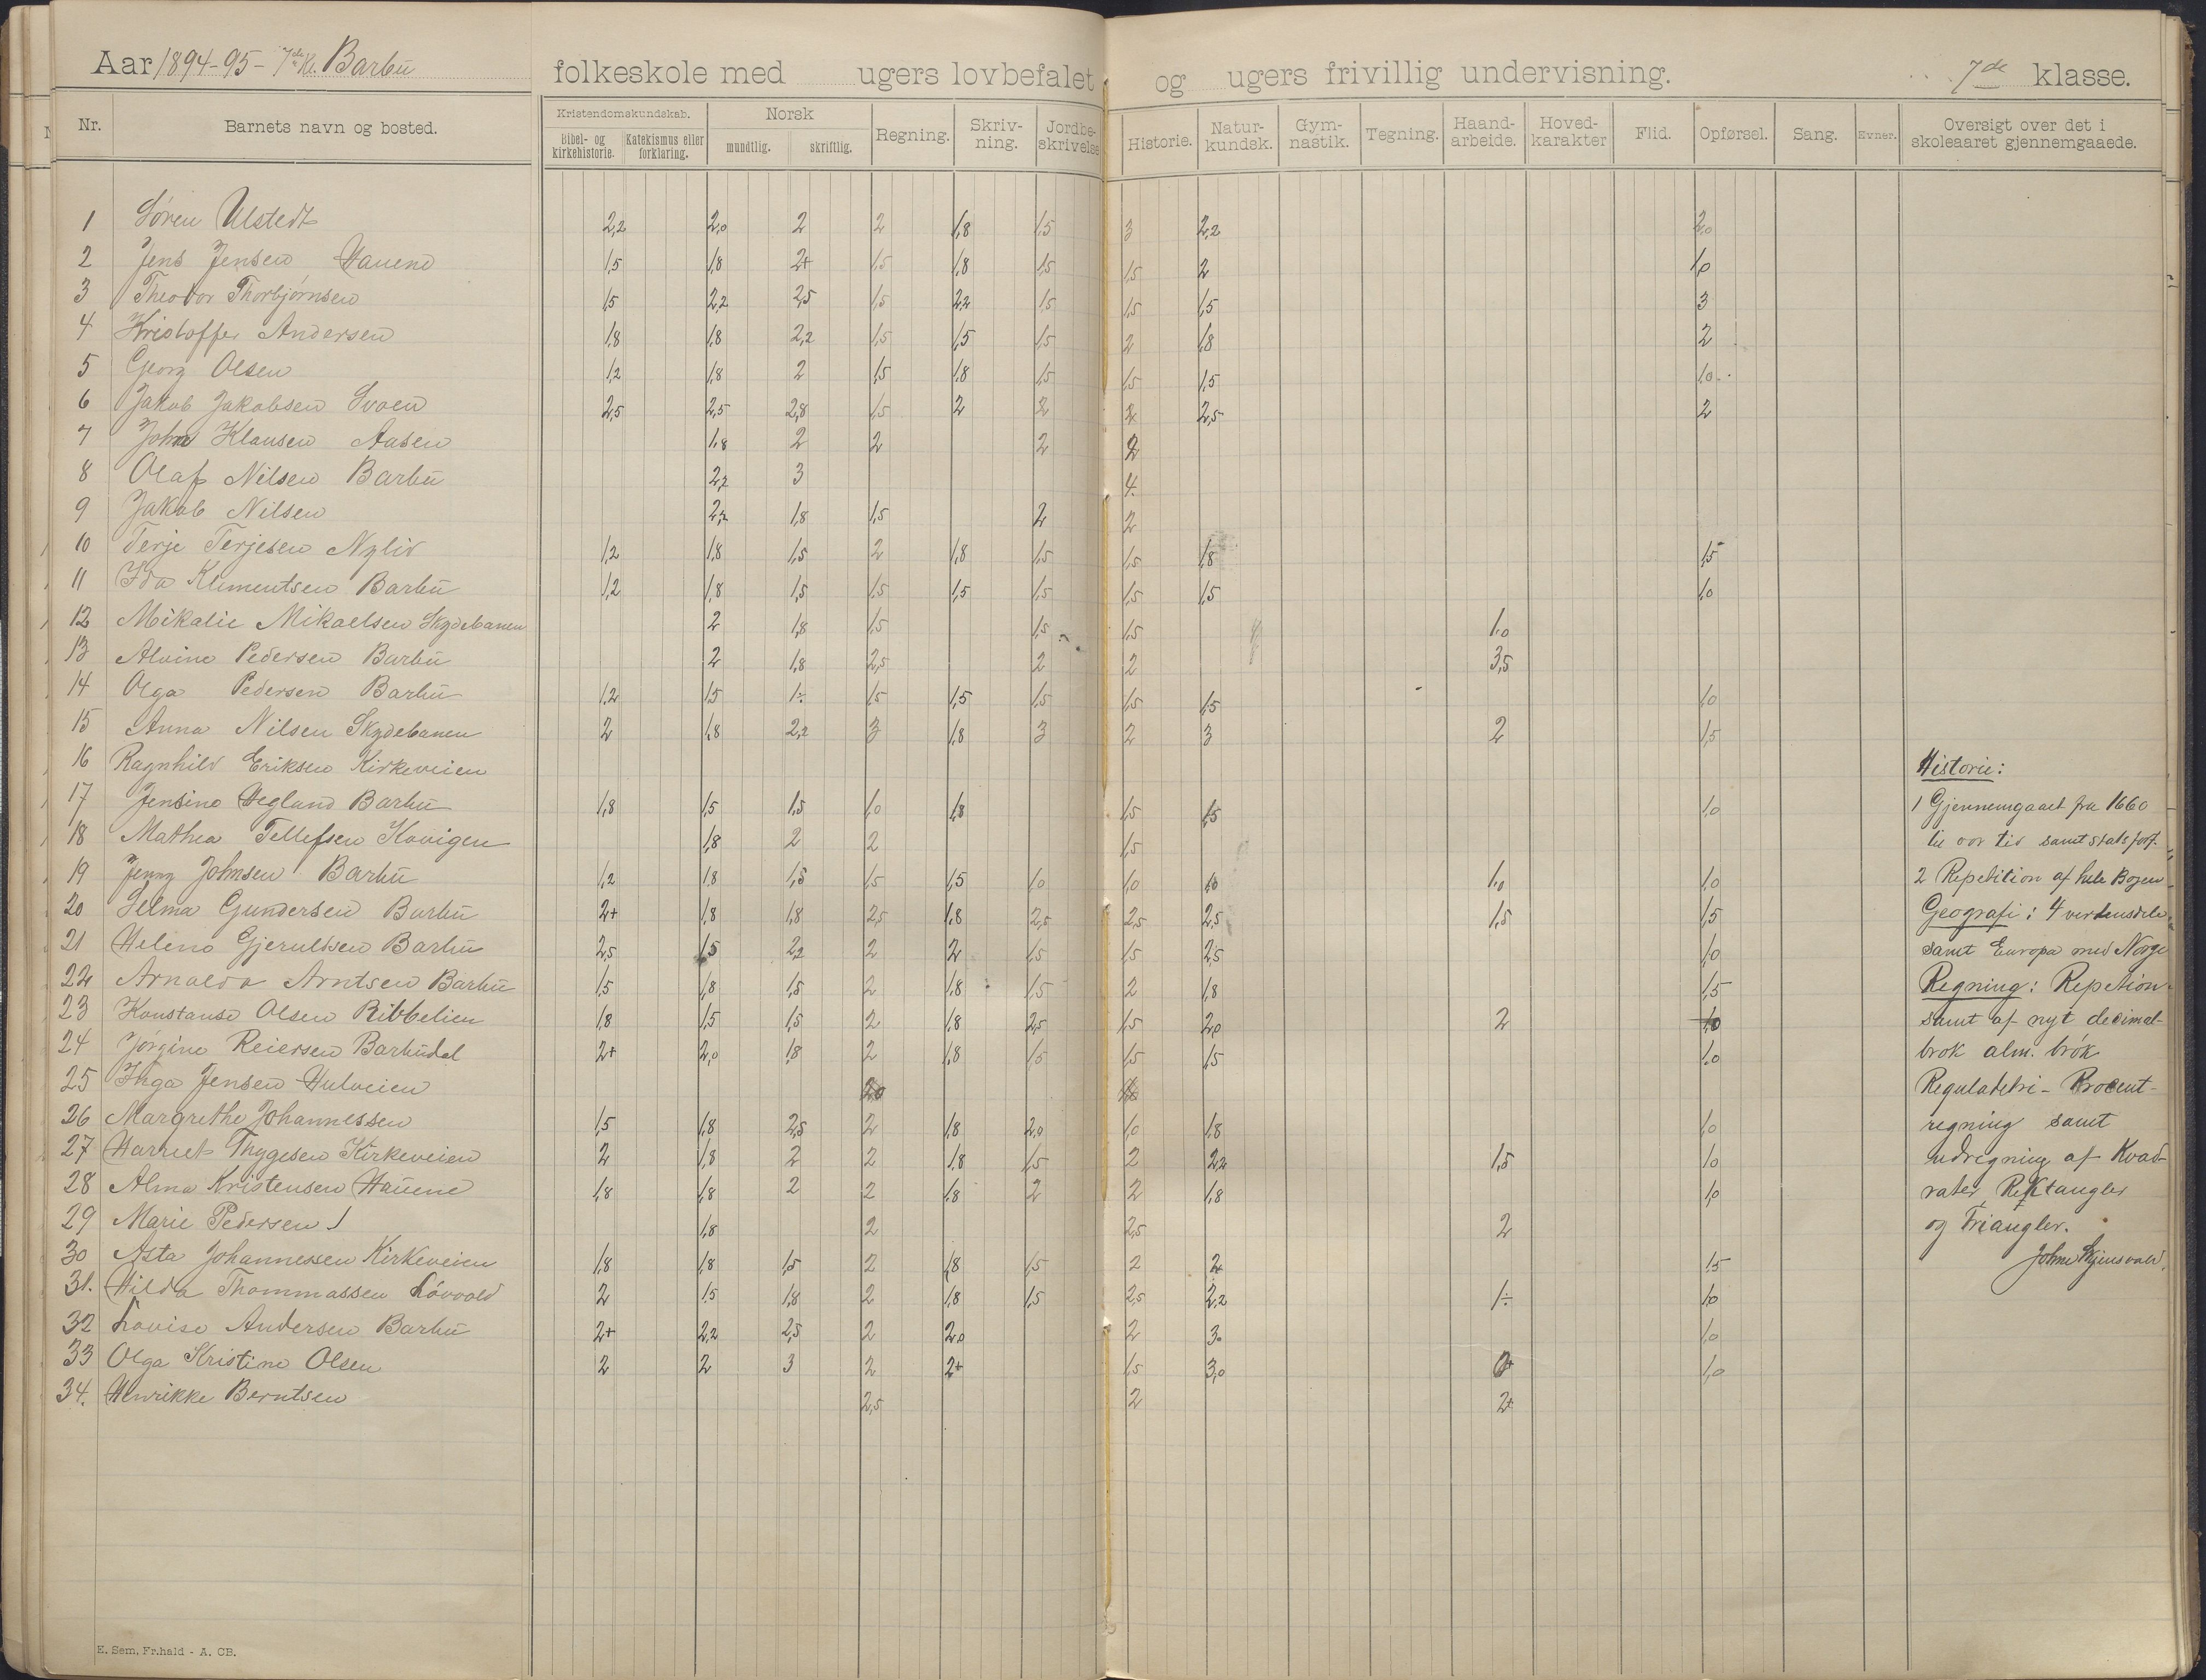 Aar 1894-95- 7de Kl. Barbu folkeskole med ugers lovbefalet og ugers frivillig undervisning. 7de klasse.
Nr. Barnets navn og bosted. Kristendomskundskab. Bibel- og kirkehistorie. Katekismus eller forklaring. Norsk mundtlig. skriftlig. Regning. Skriv-ning. Jordbe-skrivelse Historie. Natur-kundsk. Gym-nastik. Tegning. Haand-arbeide. Hoved-karakter Flid. Opførsel. Sang. Evner. Oversigt over det i skoleaaret gjennemgaaede.
1 Søren Ulstedt 2,2 2,0 2 2 1,8 1,5 3 2,2 2,0
2 Jens Jensen Hauene 1,5 1,8 2+ 1,5 1,8 1,5 1,5 2 1,0
3 Theodor Thorbjørnsen 1,5 2,2 2,5 1,5 2,2 1,5 1,5 1,5 3
4 Kristoffer Andersen 1,8 1,8 2,2 1,5 1,5 1,5 2 1,8 2
5 Georg Olsen 1,2 1,8 2 1,5 1,8 1,5 1,5 1,5 1,0
6 Jakob Jakobsen 2,5 2,5 2,8 1,5 2 2 2 2,5 2
7 John Klausen Aasen 1,8 2 2 2 2
8 Olaf Nilsen Barbu 2,2 3 4
9 Jakob Nilsen 2,2 1,8 1,5 2 2
10 Terje Terjesen Nylid 1,2 1,8 1,5 2 1,8 1,5 1,5 1,8 1,5
11 Ida Klementsen Barbu 1,2 1,8 1,5 1,5 1,5 1,5 1,5 1,5 1,0
12 Mikalie Mikaelsen Skydebanen 2 1,8 1,5 1,5 1,5 1,0
13 Alvine Pedersen Barbu 2 1,8 2,5 2 2 3,5
14 Olga Pedersen Barbu 1,2 1,5 1÷ 1,5 1,5 1,5 1,5 1,5 1,0
15 Anna Nilsen Skydebanen 2 1,8 2,2 3 1,8 3 2 3 2 1,5
16 Ragnhild Eriksen Kirkeveien
17 Jensine Hegland Barbu 1,8 1,5 1,5 1,0 1,8 1,5 1,5 1,0
18 Mathea Tellefsen 1,8 2 2 1,5
19 Jenny Johnsen Barbu 1,2 1,8 1,5 1,5 1,5 1,0 1,0 1,0 1,0 1,0
20 Selma Gundersen Barbu 2+ 1,8 1,8 2,5 1,8 2,5 2,5 2,5 1,5 1,5
21 Helene Gjeruldsen Barbu 2,5 1,5 2,2 2 2 1,5 1,5 2,5 1,0
22 Arnalda Arntsen Barbu 1,5 1,8 1,5 2 1,8 1,5 2 1,8 1,5
23 Konstanse Olsen Ribbelien 1,8 1,5 1,5 2 1,8 2,5 1,5 2,0 2 1,0
24 Jørgine Reiersen Barbudal 2+ 2,0 1,8 2 1,8 1,5 1,5 1,5 1,0
25 Inga Jensen Hulveien 2,0
26 Margrethe Johannessen 1,5 1,8 2,5 2 1,8 2,0 1,0 1,8 1,0
27 Harriet Thygesen Kirkeveien 2 1,8 2 2 1,8 1,5 2 2,2 1,5 1,0
28 Alma Kristensen Hauene 1,8 1,8 2 2 1,8 2 2 1,8 1,0
29 Marie Pedersen 1,8 2 2,5 2
30 Asta Johannessen Kirkeveien 1,8 1,8 1,5 2 1,8 1,5 2 2 1,5
31. Hilda Thommassen Løvvold 2 1,5 1,8 2 1,8 1,5 2,5 2,2 1÷ 1,0
32 Lovise Andersen Barbu 2+ 2,2 2,5 2 2,0 2 3 1,0
33 Olga Kristine Olsen 2 2 3 2 2+ 1,5 3,0 2+ 1,0
34. Henrikke Berntsen 2,5 2 2+
Historie:
1 Gjennemgaaet fra 1660
til vor tid samt statsforf.
2 Repetition af hele Bogen
Geografi: 4 verdensdele
samt Europa med Norge
Regning: Repetion
samt af nyt decimal-
brøk alm. brøk
Reguladetri - Procent-
regning samt
udregning af Kvad-
rater, Rektangler
og Triangler.
E. Sem, Fr.hald - A. CB.